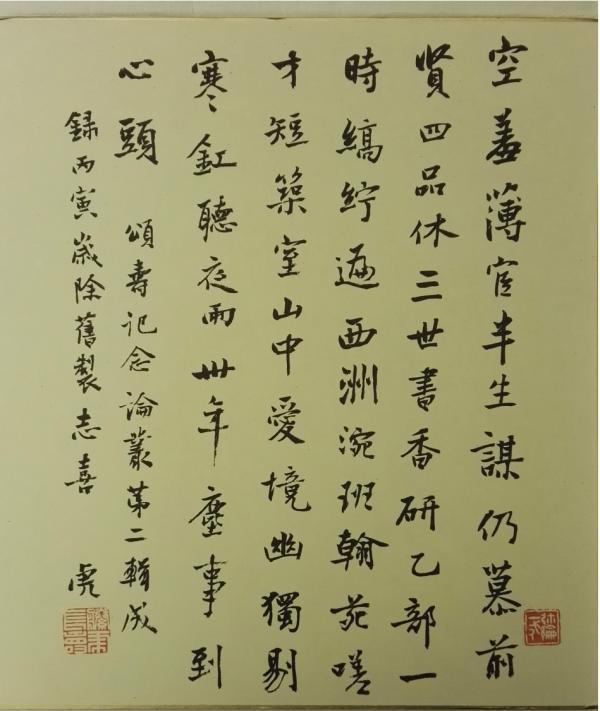 空羞薄宦半生謀仍慕前
賢四品休三世書香研乙部一
時縞紵遍西洲涴班翰苑嗟
才短築室山中愛境幽獨剔
寒釭聽夜雨卌年塵事到
心頭 頌壽記念論叢第二輯成
錄丙寅歲除舊製志喜 虎